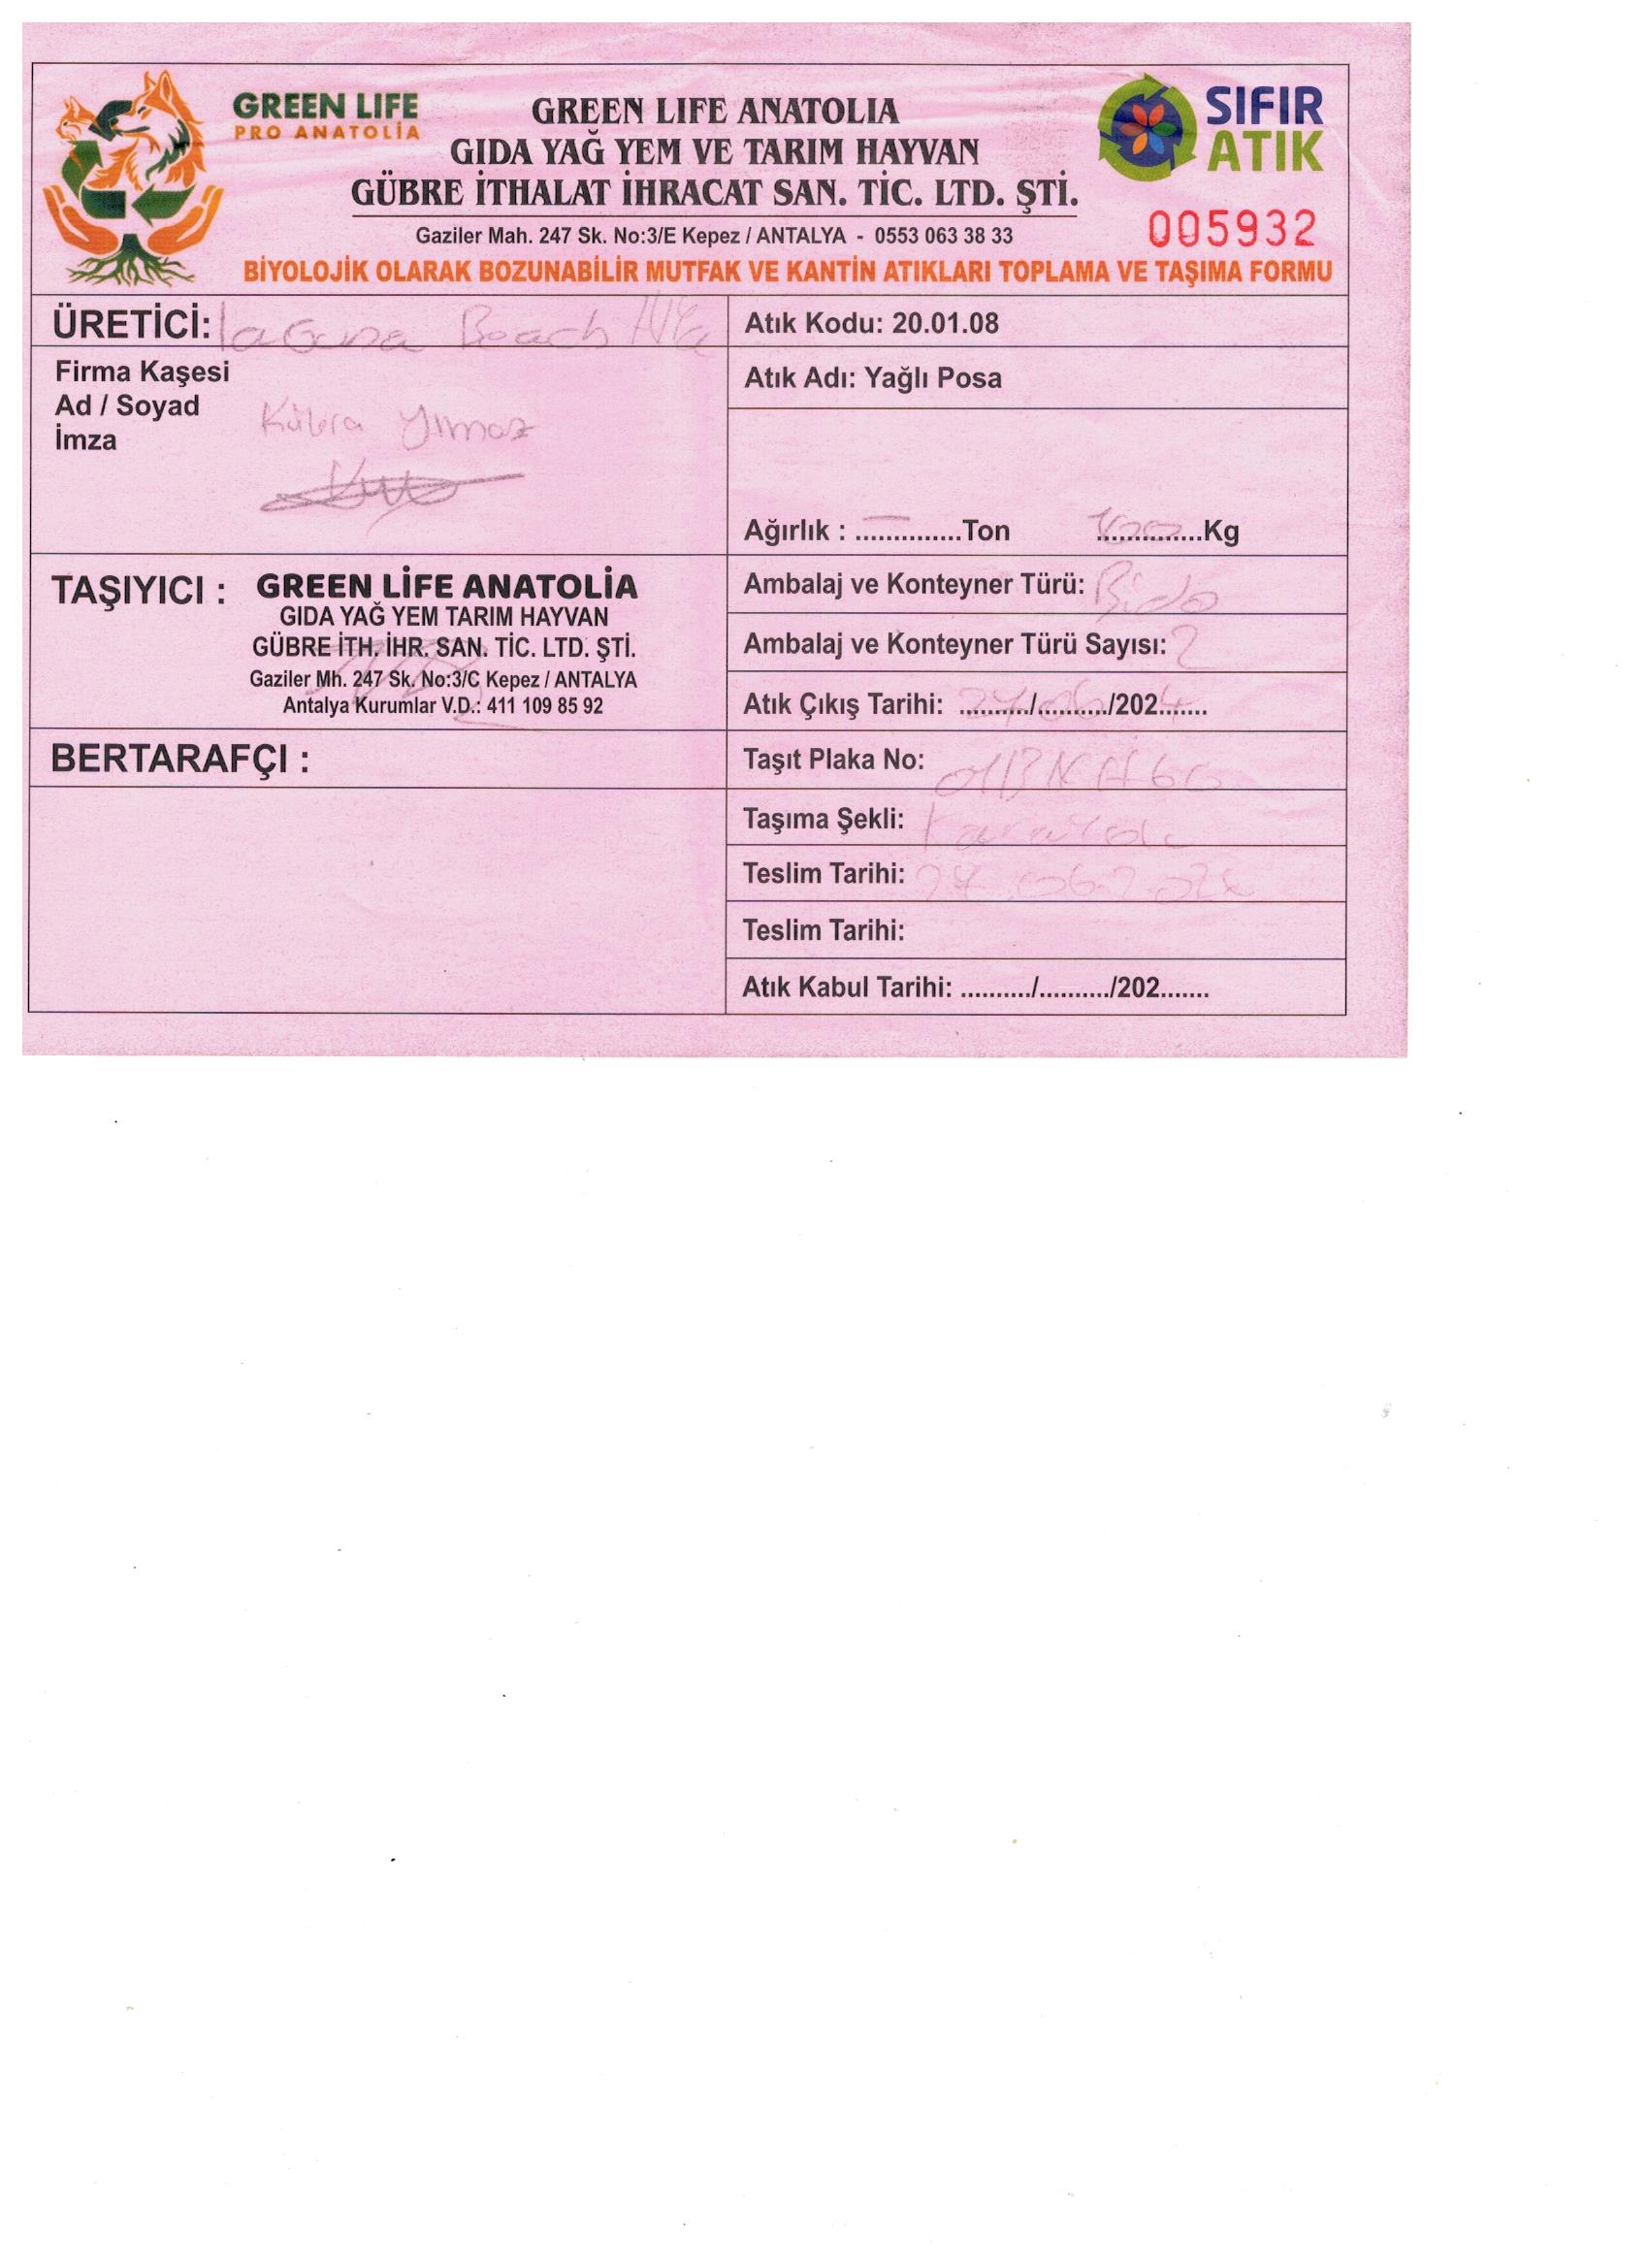 GREEN LIFE
PRO ANATOLİA
GREEN LIFE ANATOLIA
GIDA YAĞ YEM VE TARIM HAYVAN
GÜBRE İTHALAT İHRACAT SAN. TİC. LTD. ŞTİ.
Gaziler Mah. 247 Sk. No:3/E Kepez / ANTALYA - 0553 063 38 33
SIFIR
ATIK
005932
BİYOLOJİK OLARAK BOZUNABİLİR MUTFAK VE KANTİN ATIKLARI TOPLAMA VE TAŞIMA FORMU
ÜRETİCİ: Laguna Beach
Firma Kaşesi
Ad / Soyad
İmza
Kübra Yılmaz
Atık Kodu: 20.01.08
Atık Adı: Yağlı Posa
Ağırlık : ..............Ton ..............Kg
TAŞIYICI :
GREEN LİFE ANATOLİA
GIDA YAĞ YEM TARIM HAYVAN
GÜBRE İTH. İHR. SAN. TİC. LTD. ŞTİ.
Gaziler Mh. 247 Sk. No:3/C Kepez / ANTALYA
Antalya Kurumlar V.D.: 411 109 85 92
Ambalaj ve Konteyner Türü: Bido
Ambalaj ve Konteyner Türü Sayısı: 2
Atık Çıkış Tarihi: 27/06/2024
BERTARAFÇI :
Taşıt Plaka No:
Taşıma Şekli:
Teslim Tarihi: 27.06.2024
Teslim Tarihi:
Atık Kabul Tarihi: ........../........../202.......